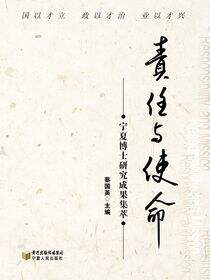 国以才立 政以才治 业以才兴
責任与使命
宁夏博士研究成果集萃
蔡国英 主编
黄河出版传媒集团
宁夏人民出版社